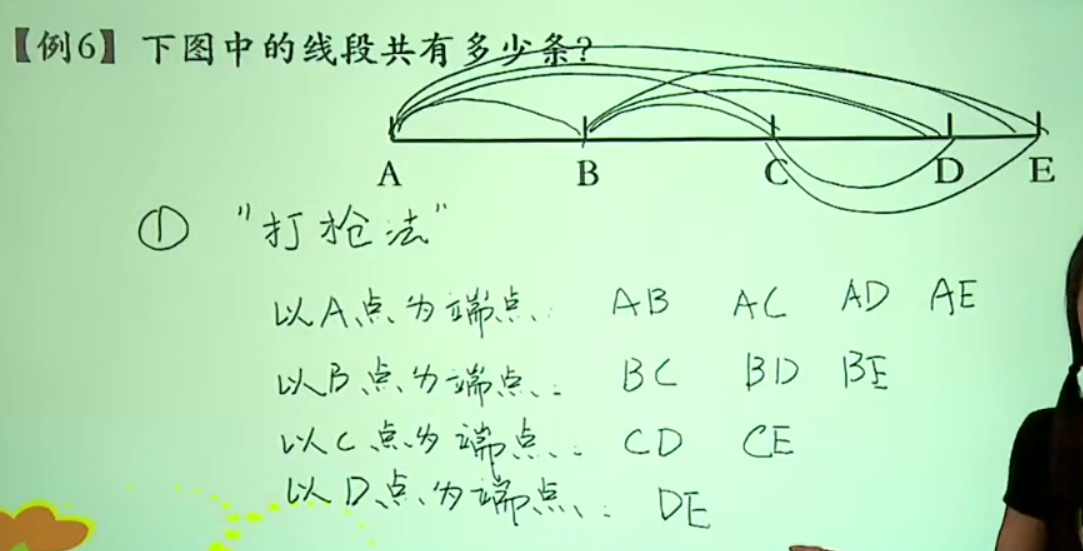 【例6】下图中的线段共有多少条？
A B C D E
① "打枪法"
以A点为端点： AB AC AD AE
以B点为端点： BC BD BE
以C点为端点： CD CE
以D点为端点： DE